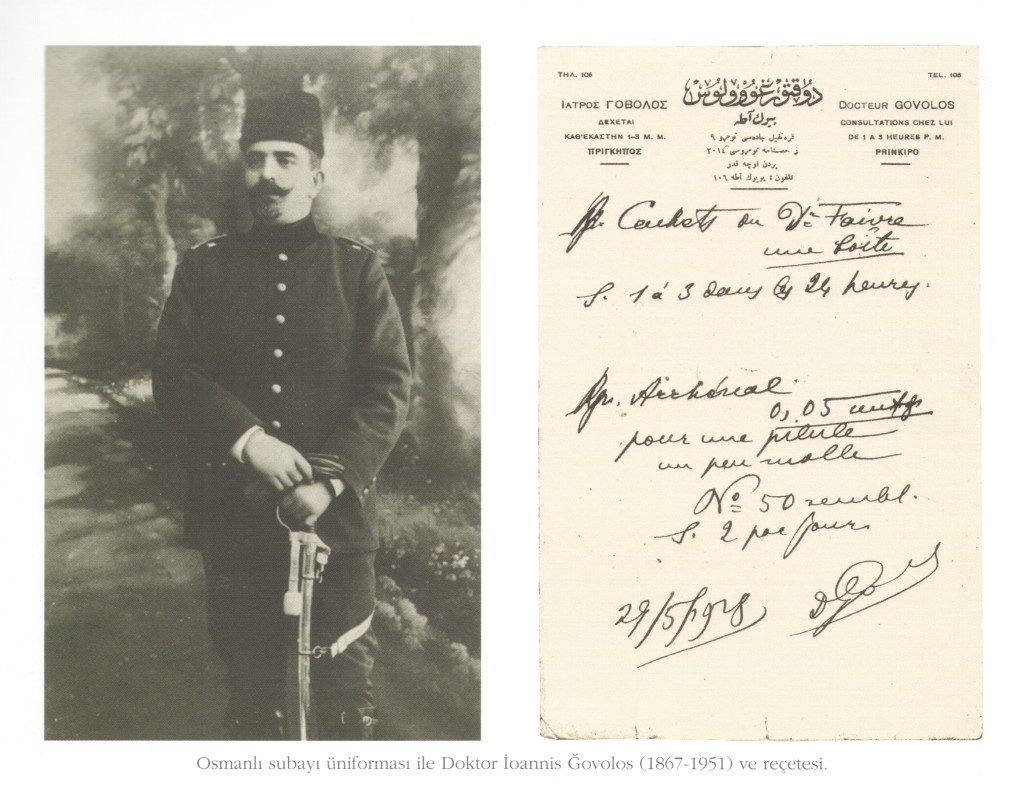 ΤΗΛ. 106
TEL. 106
ΙΑΤΡΟΣ ΓΟΒΟΛΟΣ
ΔΕΧΕΤΑΙ
ΚΑΘ'ΕΚΑΣΤΗΝ 1–3 Μ. Μ.
ΠΡΙΓΚΗΠΟΣ
دوقتور غووولوس
بيوك آطه
DOCTEUR GOVOLOS
CONSULTATIONS CHEZ LUI
DE 1 A 3 HEURES P. M.
PRINKIPO
Rp. Cachets du Dr Faivre
une boîte
S. 1 à 3 dans les 24 heures.
Rp. Arrhénal
0,05
pour une pilule
un peu molle
No 50 sembl.
S. 2 par jour
29/5/1928
Osmanlı subayı üniforması ile Doktor İoannis Ğovolos (1867-1951) ve reçetesi.